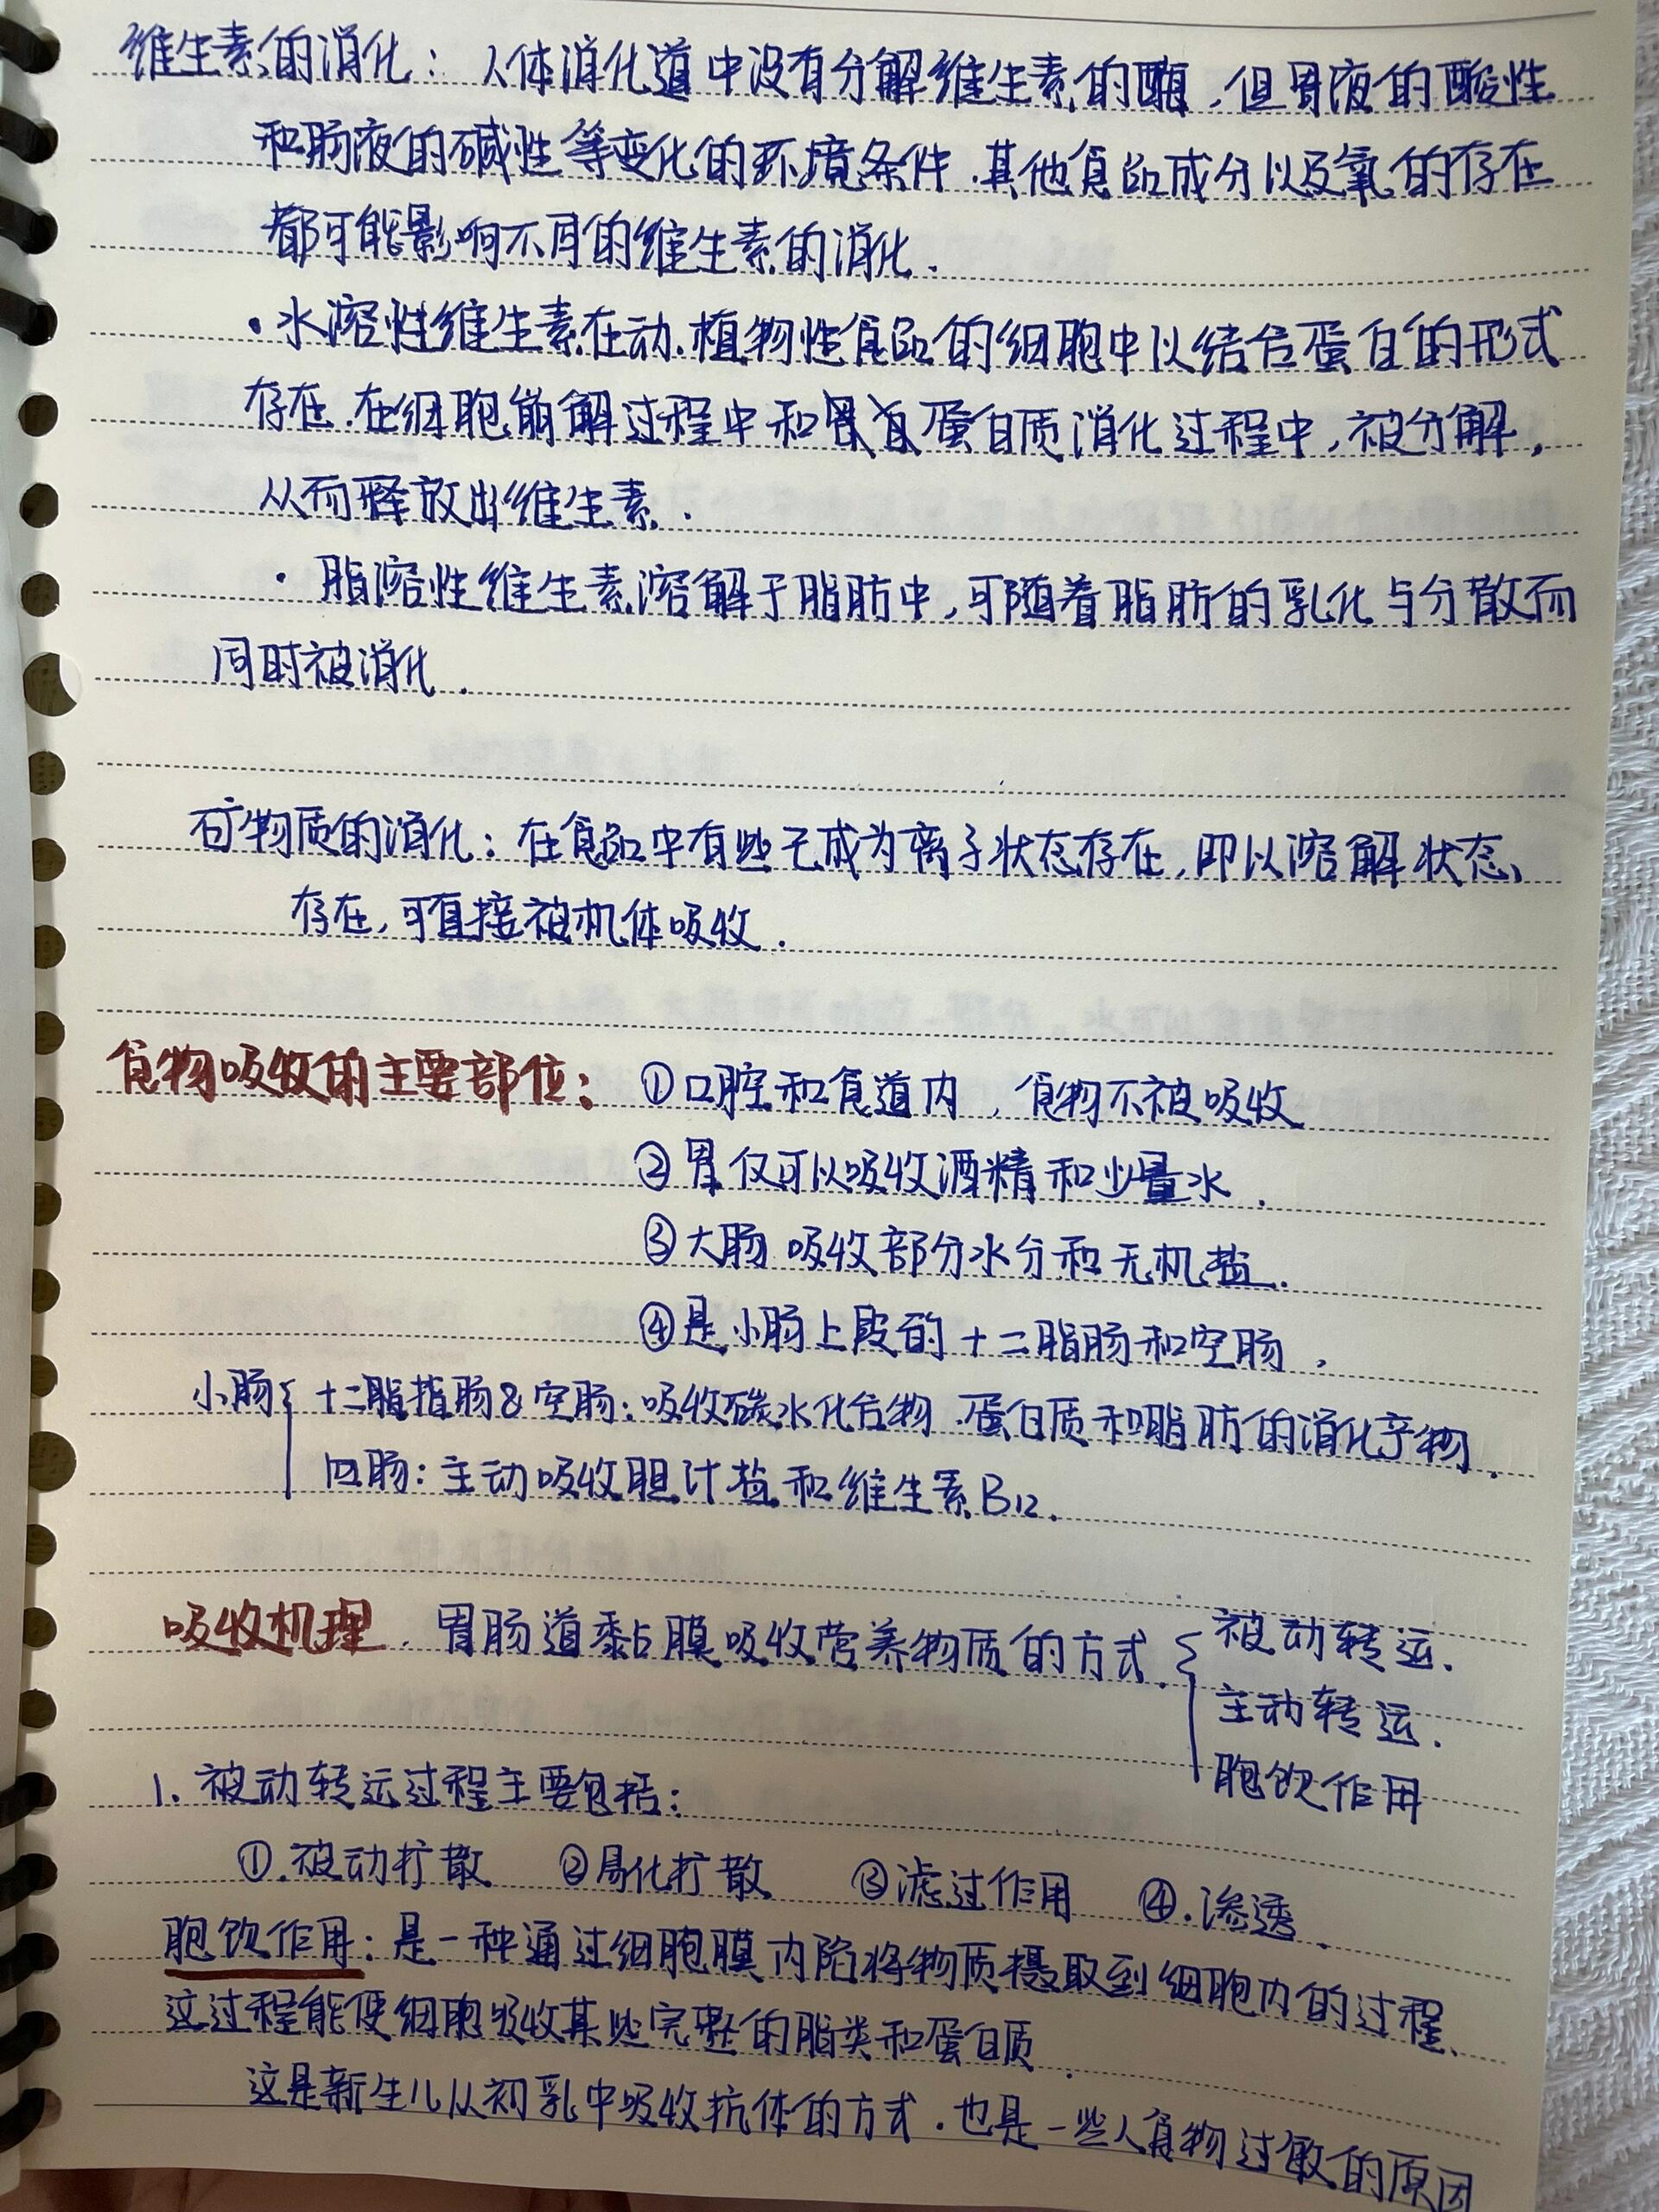 维生素的消化：人体消化道中没有分解维生素的酶，但胃液的酸性
和肠液的碱性等变化的环境条件、其他食品成分以及氧的存在
都可能影响不同的维生素的消化.
·水溶性维生素在动、植物性食品的细胞中以结合蛋白的形式
存在.在细胞崩解过程中和蛋白质消化过程中,被分解,
从而释放出维生素.
·脂溶性维生素溶解于脂肪中,可随着脂肪的乳化与分散而
同时被消化.
矿物质的消化：在食品中有些无成为离子状态存在,即以溶解状态
存在,可直接被机体吸收.
食物吸收的主要部位：①口腔和食道内，食物不被吸收
②胃仅可以吸收酒精和少量水.
③大肠 吸收部分水分和无机盐.
④是小肠上段的十二脂肠和空肠.
小肠{ 十二指肠&空肠：吸收碳水化合物、蛋白质和脂肪的消化产物.
回肠：主动吸收胆汁盐和维生素B12.
吸收机理. 胃肠道黏膜吸收营养物质的方式{ 被动转运.
主动转运.
胞饮作用
1. 被动转运过程主要包括：
①.被动扩散 ②易化扩散 ③滤过作用 ④.渗透.
胞饮作用：是一种通过细胞膜内陷将物质摄取到细胞内的过程.
这过程能使细胞吸收某些完整的脂类和蛋白质.
这是新生儿从初乳中吸收抗体的方式.也是一些人食物过敏的原因